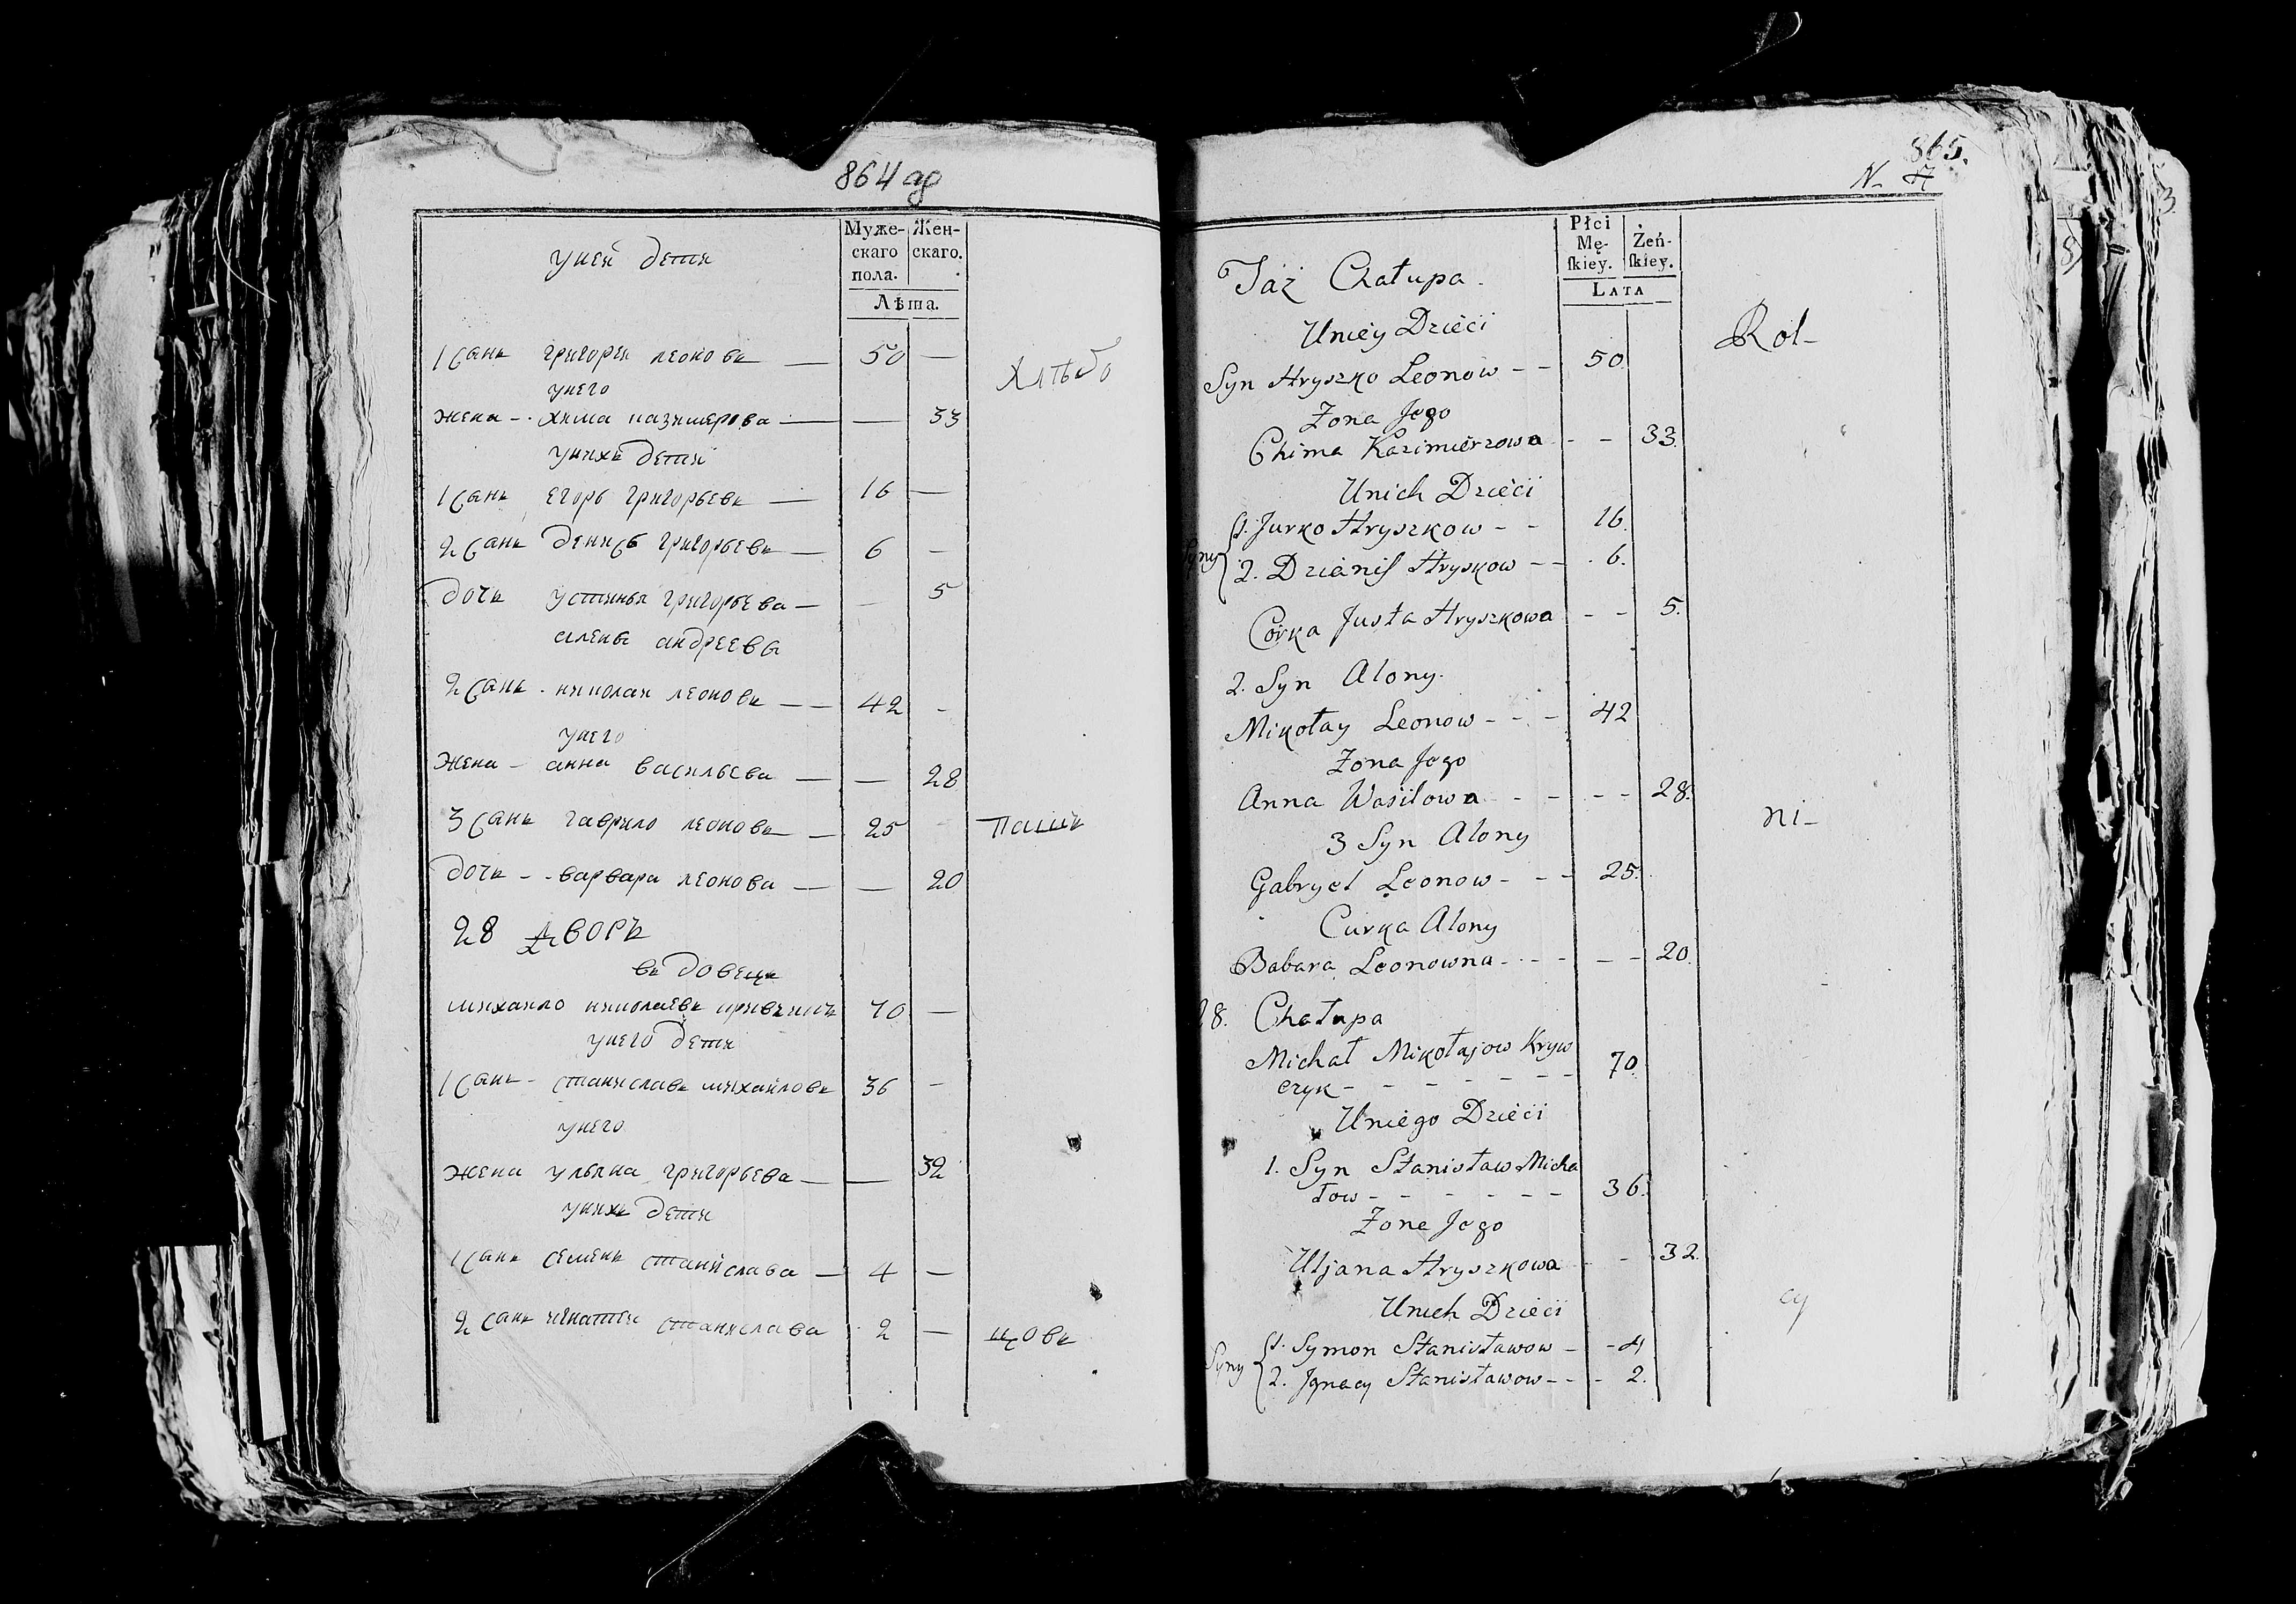 864 об
у ней дети
Муже-
скаго
пола.
Жен-
скаго.
Лѣта.
1 Сынъ григорей леоновъ — 50 —
у него
жена - - хима казимерова — — 33
у нихъ дети
1 Сынъ егоръ григорьевъ — 16 —
2 Сынъ денисъ григорьевъ — 6 —
дочь устинья григорьева — — 5
алены андреевы
2 Сынъ - николай леоновъ — — 42 -
у него
Жена - анна васильева — — 28
3 Сынъ гаврило леоновъ — 25 -
дочь - - варвара леонова — — 20
28 Дворъ
вдовецъ
михайло николаевъ 70 —
у него дети
1 Сынъ - станиславъ михайловъ 36 —
у него
жена ульяна григорьева — — 32
у нихъ дети
1 Сынъ семенъ станислава — 4 —
2 Сынъ игнатей станислава 2 —
Хлѣбо
паш
цовъ
865.
N. 17
Taż Chałupa.
Płci
Mę-
ſkiey.
Żeń-
ſkiey.
Lata
Uniey Dzieci
Syn Hryszko Leonow - - 50
Zona Jego
Chima Kazimierzowa - - 33.
Unich Dzieci
Syny { 1. Jurko Hryszkow - - 16.
2. Dzianiſ Hryskow - - 6.
Corka Justa Hryszkowa - - 5.
2. Syn Alony.
Mikołay Leonow - - - 42
Zona Jego
Anna Wasilowa - - - - 28.
3 Syn Alony
Gabryel Leonow - - - 25.
Curka Alony
Babara Leonowna - - - - - 20.
28. Chałupa
Michał Mikołajow Kryw
czyk - - - - - - - 70.
Uniego Dzieci
1. Syn Stanisław Micha
łow - - - - - - 36.
Zone Jego
Uljana Hryszkowa - - 32.
Unich Dzieci
Syny { 1. Symon Stanisławow - - 4
2. Jgnacy Stanisławow - - - 2.
Rol-
ni-
cy